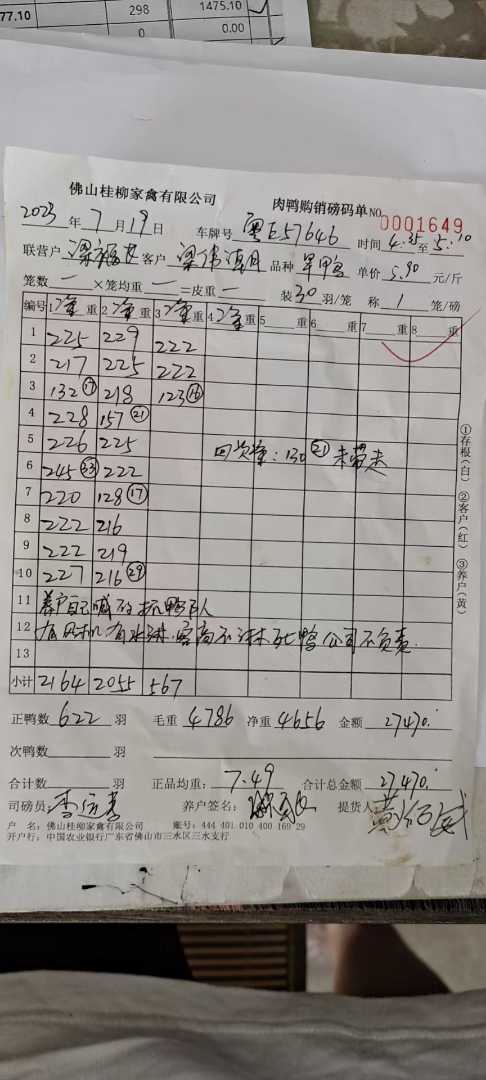 77.10 298 1475.10
0 0.00
佛山桂柳家禽有限公司 肉鸭购销磅码单 NO 0001649
2023年7月19日 车牌号 粤E57646 时间 4:35至5:10
联营户 客户 梁伟 品种 单价 5.90 元/斤
笼数 一 ×笼均重 一 =皮重 一 装30羽/笼 称 1 笼/磅
编号 1净重 2净重 3净重 4净重 5 重 6 重 7 重 8 重
1 225 229 222
2 217 225 222
3 132⑰ 218 123⑯
4 228 157㉑
5 226 225
6 245㉝ 222 回笼净:130㉑未带走
7 220 128⑰
8 222 216
9 222 219
10 227 216㉙
11 养户自己喊 抓鸭工人
12 有风机有水淋.客商不淋死鸭公司不负责.
13
小计 2164 2055 567
正鸭数 622 羽 毛重 4786 净重 4656 金额 27470.
次鸭数 羽
合计数 羽 正品均重: 7.49 合计总金额 27470.
司磅员: 李 养户签名: 提货人 黄
户 名: 佛山桂柳家禽有限公司 账号: 444 401 010 400 169 29
开户行: 中国农业银行广东省佛山市三水区三水支行
①存根(白) ②客户(红) ③养户(黄)